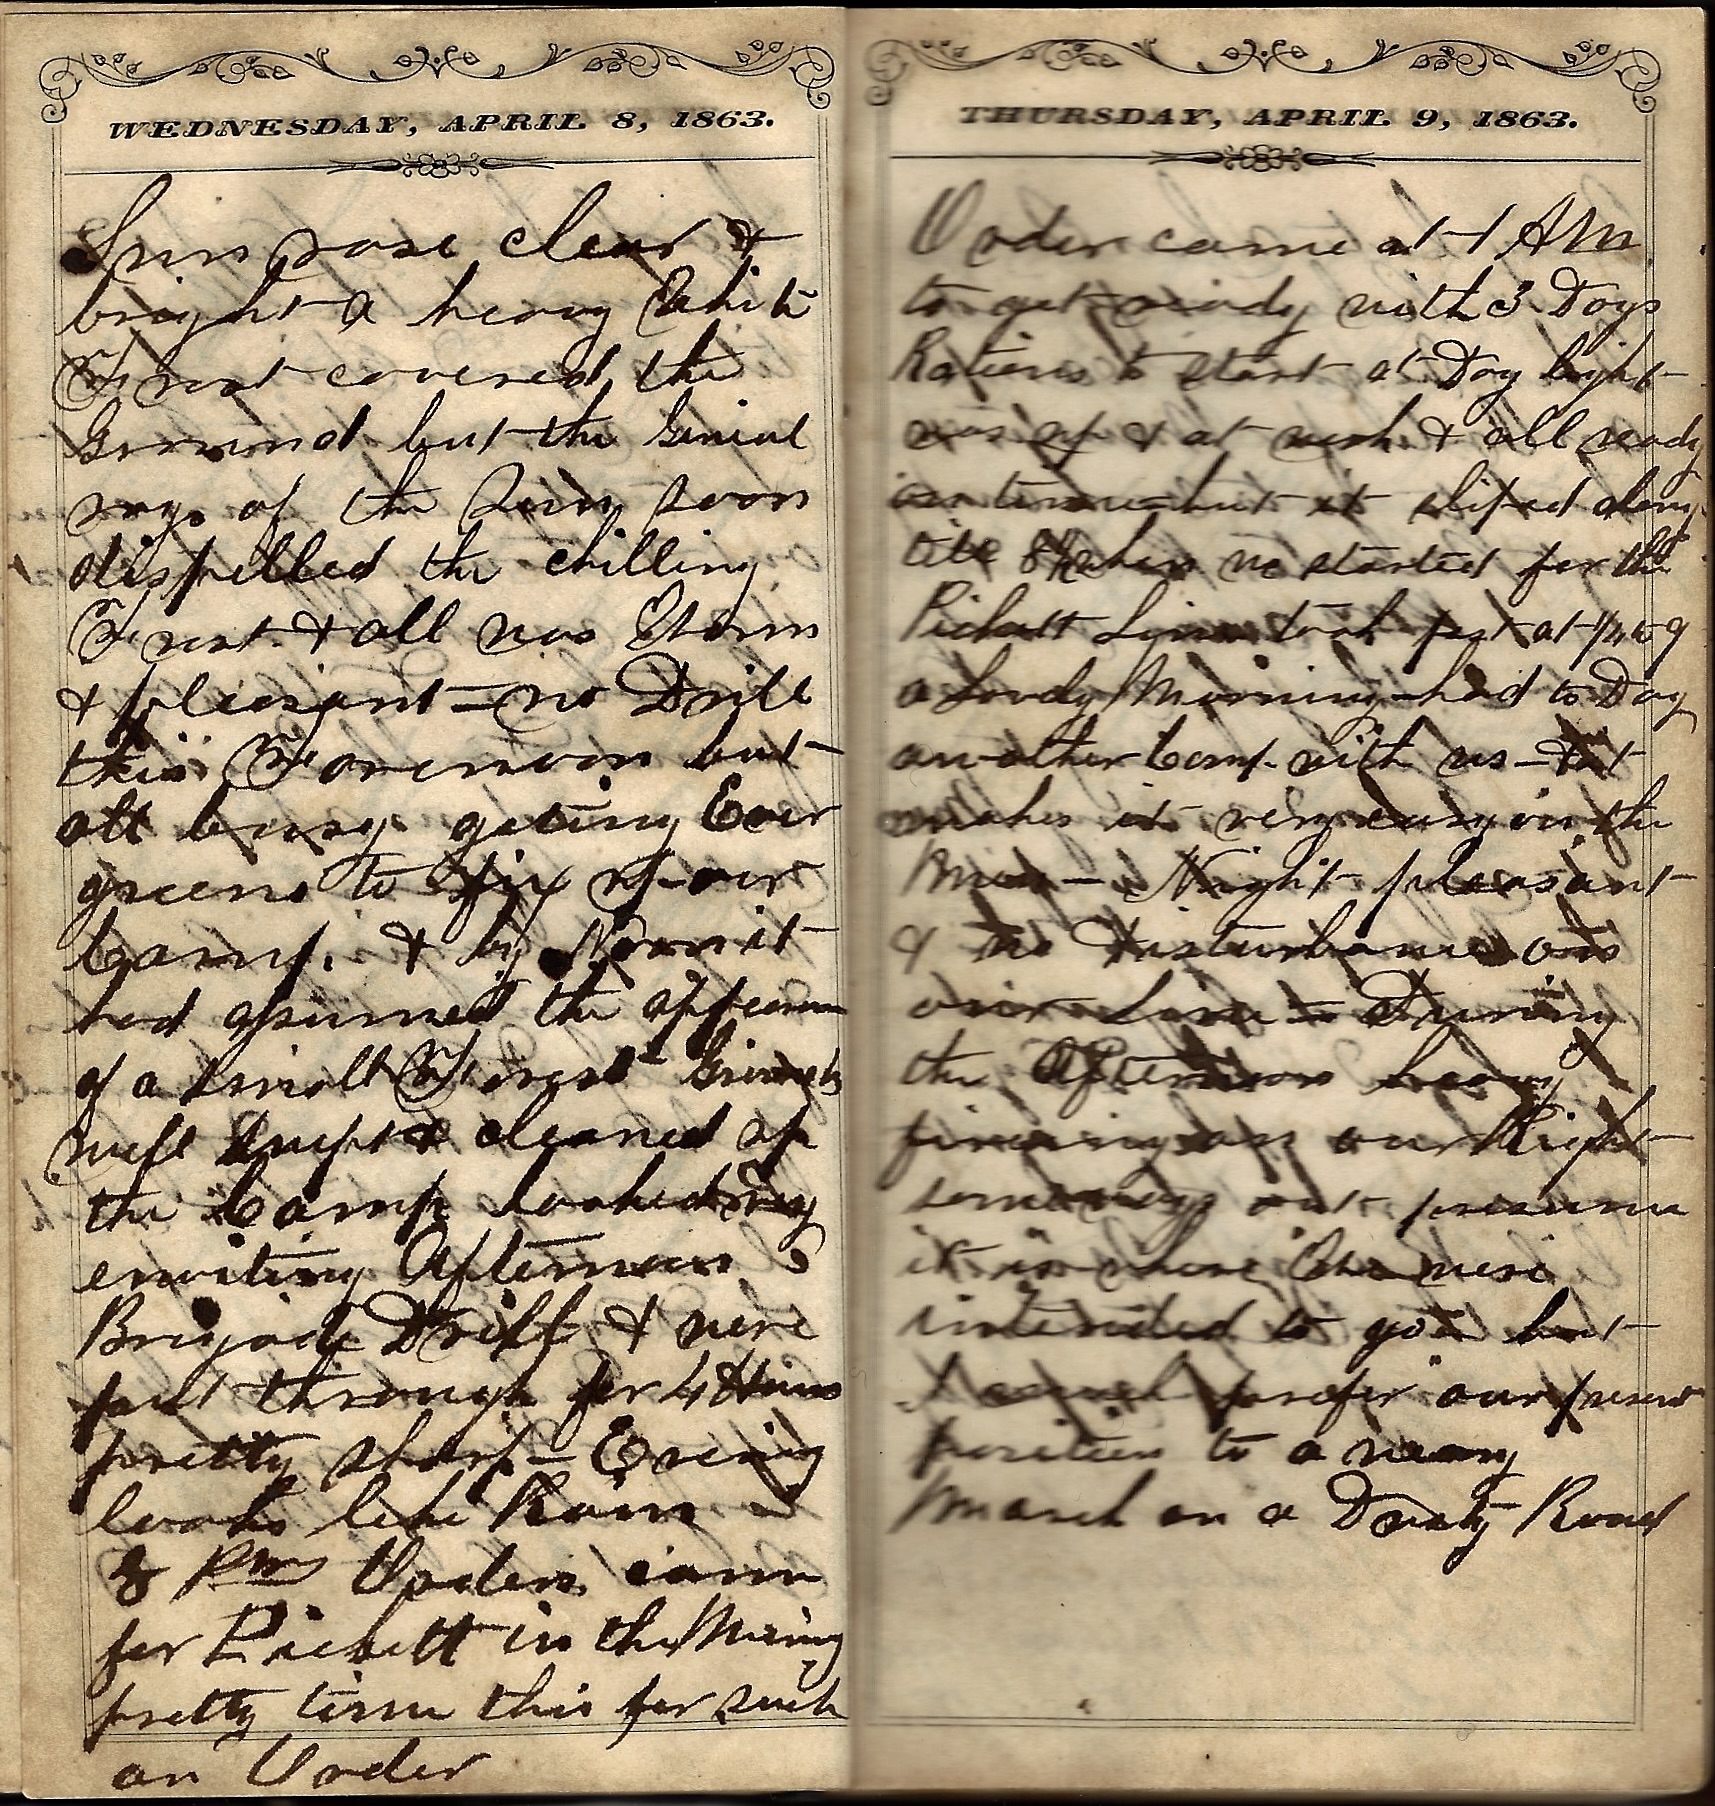 WEDNESDAY, APRIL 8, 1863.
Sun rose clear &
bright a heavy White
Frost covered the
Ground but the Genial
rays of the Sun soon
dispelled the chilling
Frost & all was Warm
& pleasant — no Drill
this Forenoon but
all busy geting Ever
greens to fix up our
Camp. & by Noon it
had assumed the appearance
of a small Forest Ground
well swept & cleaned up
the Camp looked very
enviting Afternoon
Brigade Drill & were
put through for 4 Hours
pretty sharp — Evening
looks like Rain —
8 PM Orders came
for Pickett in the Morning
pretty time this for such
an Order
THURSDAY, APRIL 9, 1863.
Order came at 1 AM
to get ready with 3 Days
Rations to start at Day light
was up & at work & all ready
in time — but it sliped along
till 8 1/2 when we started for the
Pickett Line took post at 1/4 to 9
a Lovely Morning — had to Day
another Comp. with us — that
makes it very easy on the
Men — Night pleasant
& no Disturbance on
our Line — During
the Afternoon heavy
fireing on our Right
some ways out presume
it is where we were
intended to go but
I prefer our present
position to a weary
March on a Dusty Road